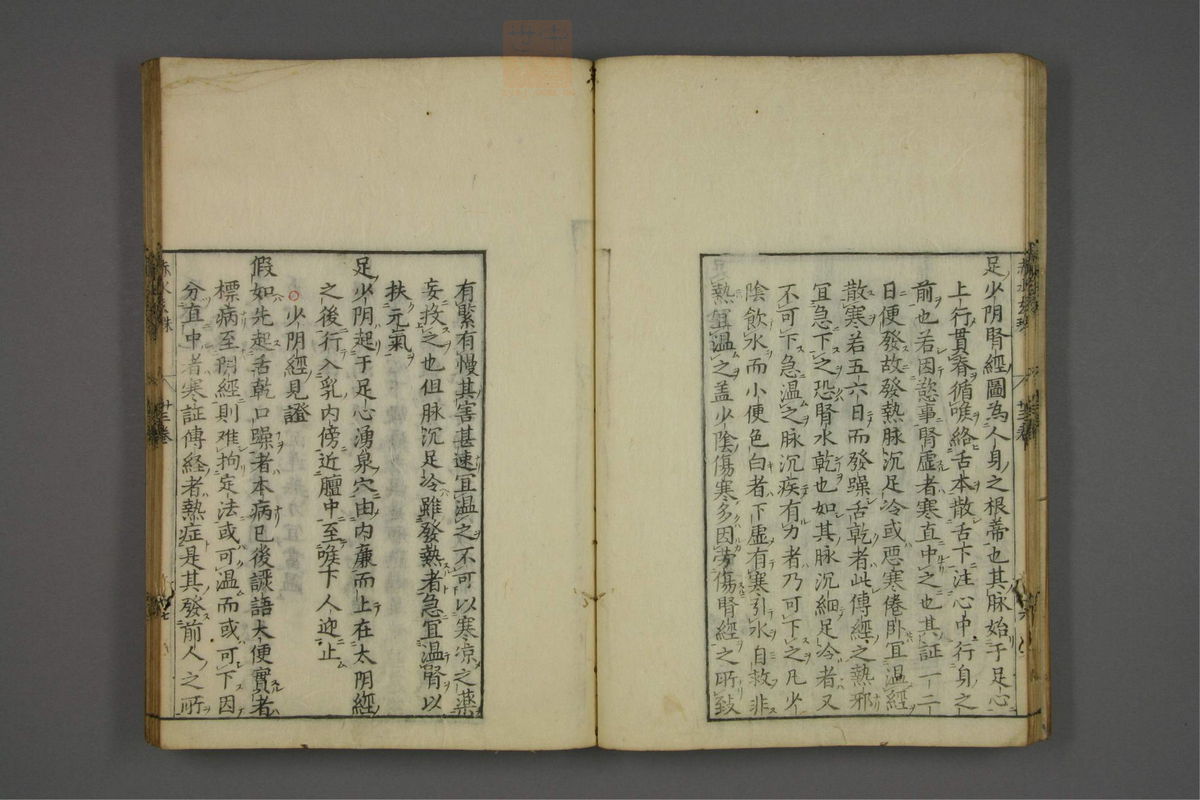 足少阴腎經圖為人身之根蒂也其脉始于足心
上行貫脊循喉絡舌本散舌下注心中行身之
前也若因慾事腎虛者寒直中之也其証一二
日便發故發熱脉沉足冷或惡寒倦卧宜温經
散寒若五六日而發躁舌乾者此傳經之熱邪
宜急下之恐腎水乾也如其脉沉細足冷者又
不可下急温之脉沉疾有力者乃可下之凡少
陰飲水而小便色白者下虛有寒引水自救非
熱宜温之盖少陰傷寒多因劳傷腎經之所致
有緊有慢其害甚速宜温之不可以寒凉之薬
妄投之也但脉沉足冷雖發熱者急宜温腎以
扶元氣
足少阴起于足心湧泉穴由内廉而上在太阴經
之後行入乳内傍近膻中至喉下人迎止
○少阴經見證
假如先起舌乾口躁者本病已後譫語大便實者
標病至阴經則难拘定法或可温而或可下因
分直中者寒証傳経者熱症是其發前人之所